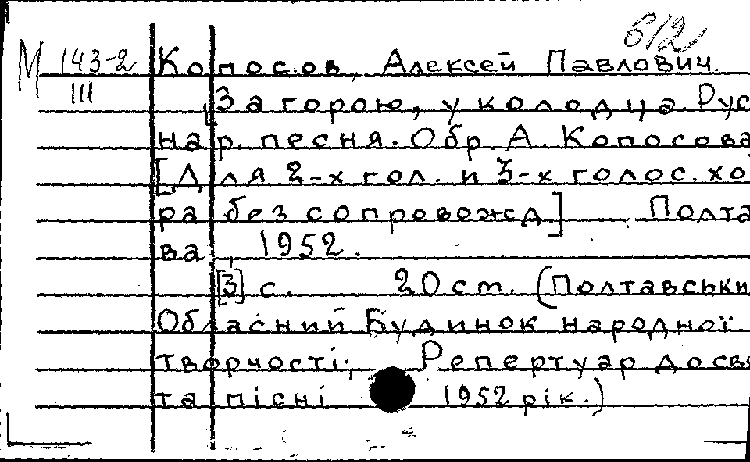 б/2
М 143-2 Копосов, Алексей Павлович
III [За горою, у колодца Рус
нар. песня. Обр. А. Копосова
[Для 2-х гол. и 3-х голос. хо
ра без сопровожд] Полта
ва, 1952.
[3] с. 20 см. (Полтавськи
Обласний Будинок народної
творчості; Репертуар досві
та пісні 1952 рік.)